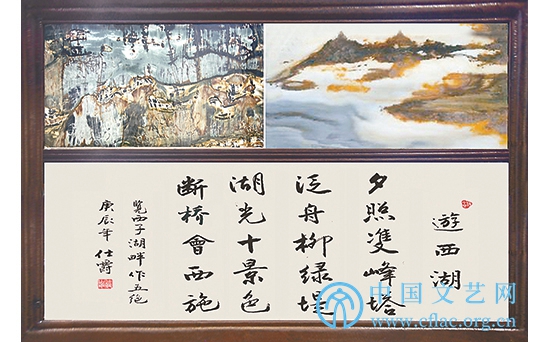 遊西湖
夕照雙峰塔
泛舟柳绿堤
湖光十景色
断桥會西施
览西子湖畔作五绝
庚辰年 仕爵
中国文艺网
www.cflac.org.cn